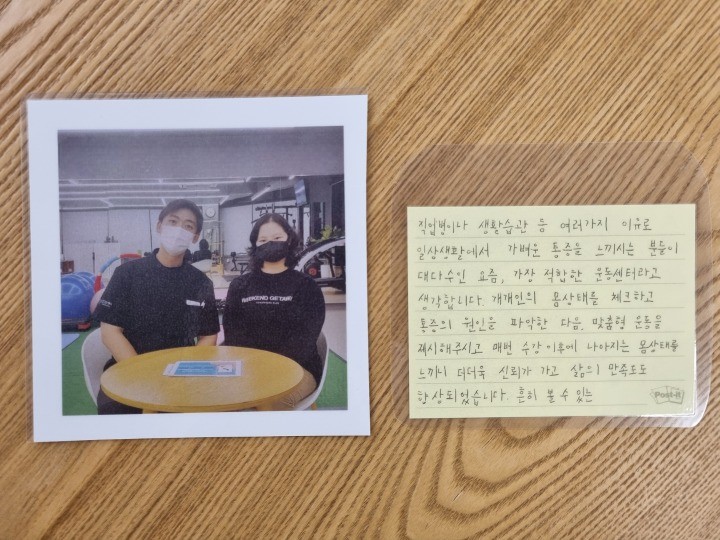 WEEKEND GETAWAY
직업병이나 생활습관 등 여러가지 이유로
일상생활에서 가벼운 통증을 느끼시는 분들이
대다수인 요즘, 가장 적합한 운동센터라고
생각합니다. 개개인의 몸상태를 체크하고
통증의 원인을 파악한 다음, 맞춤형 운동을
제시해주시고 매번 수강 이후에 나아지는 몸상태를
느끼니 더더욱 신뢰가 가고 삶의 만족도도
향상되었습니다. 흔히 볼 수 있는
Post-it